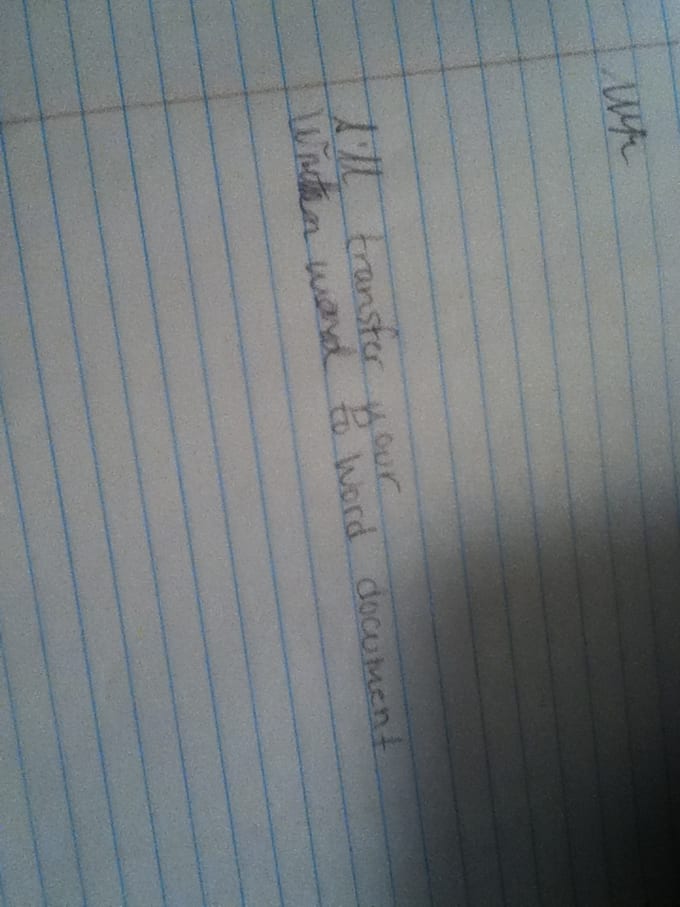 I'll transfer your
written word to word document